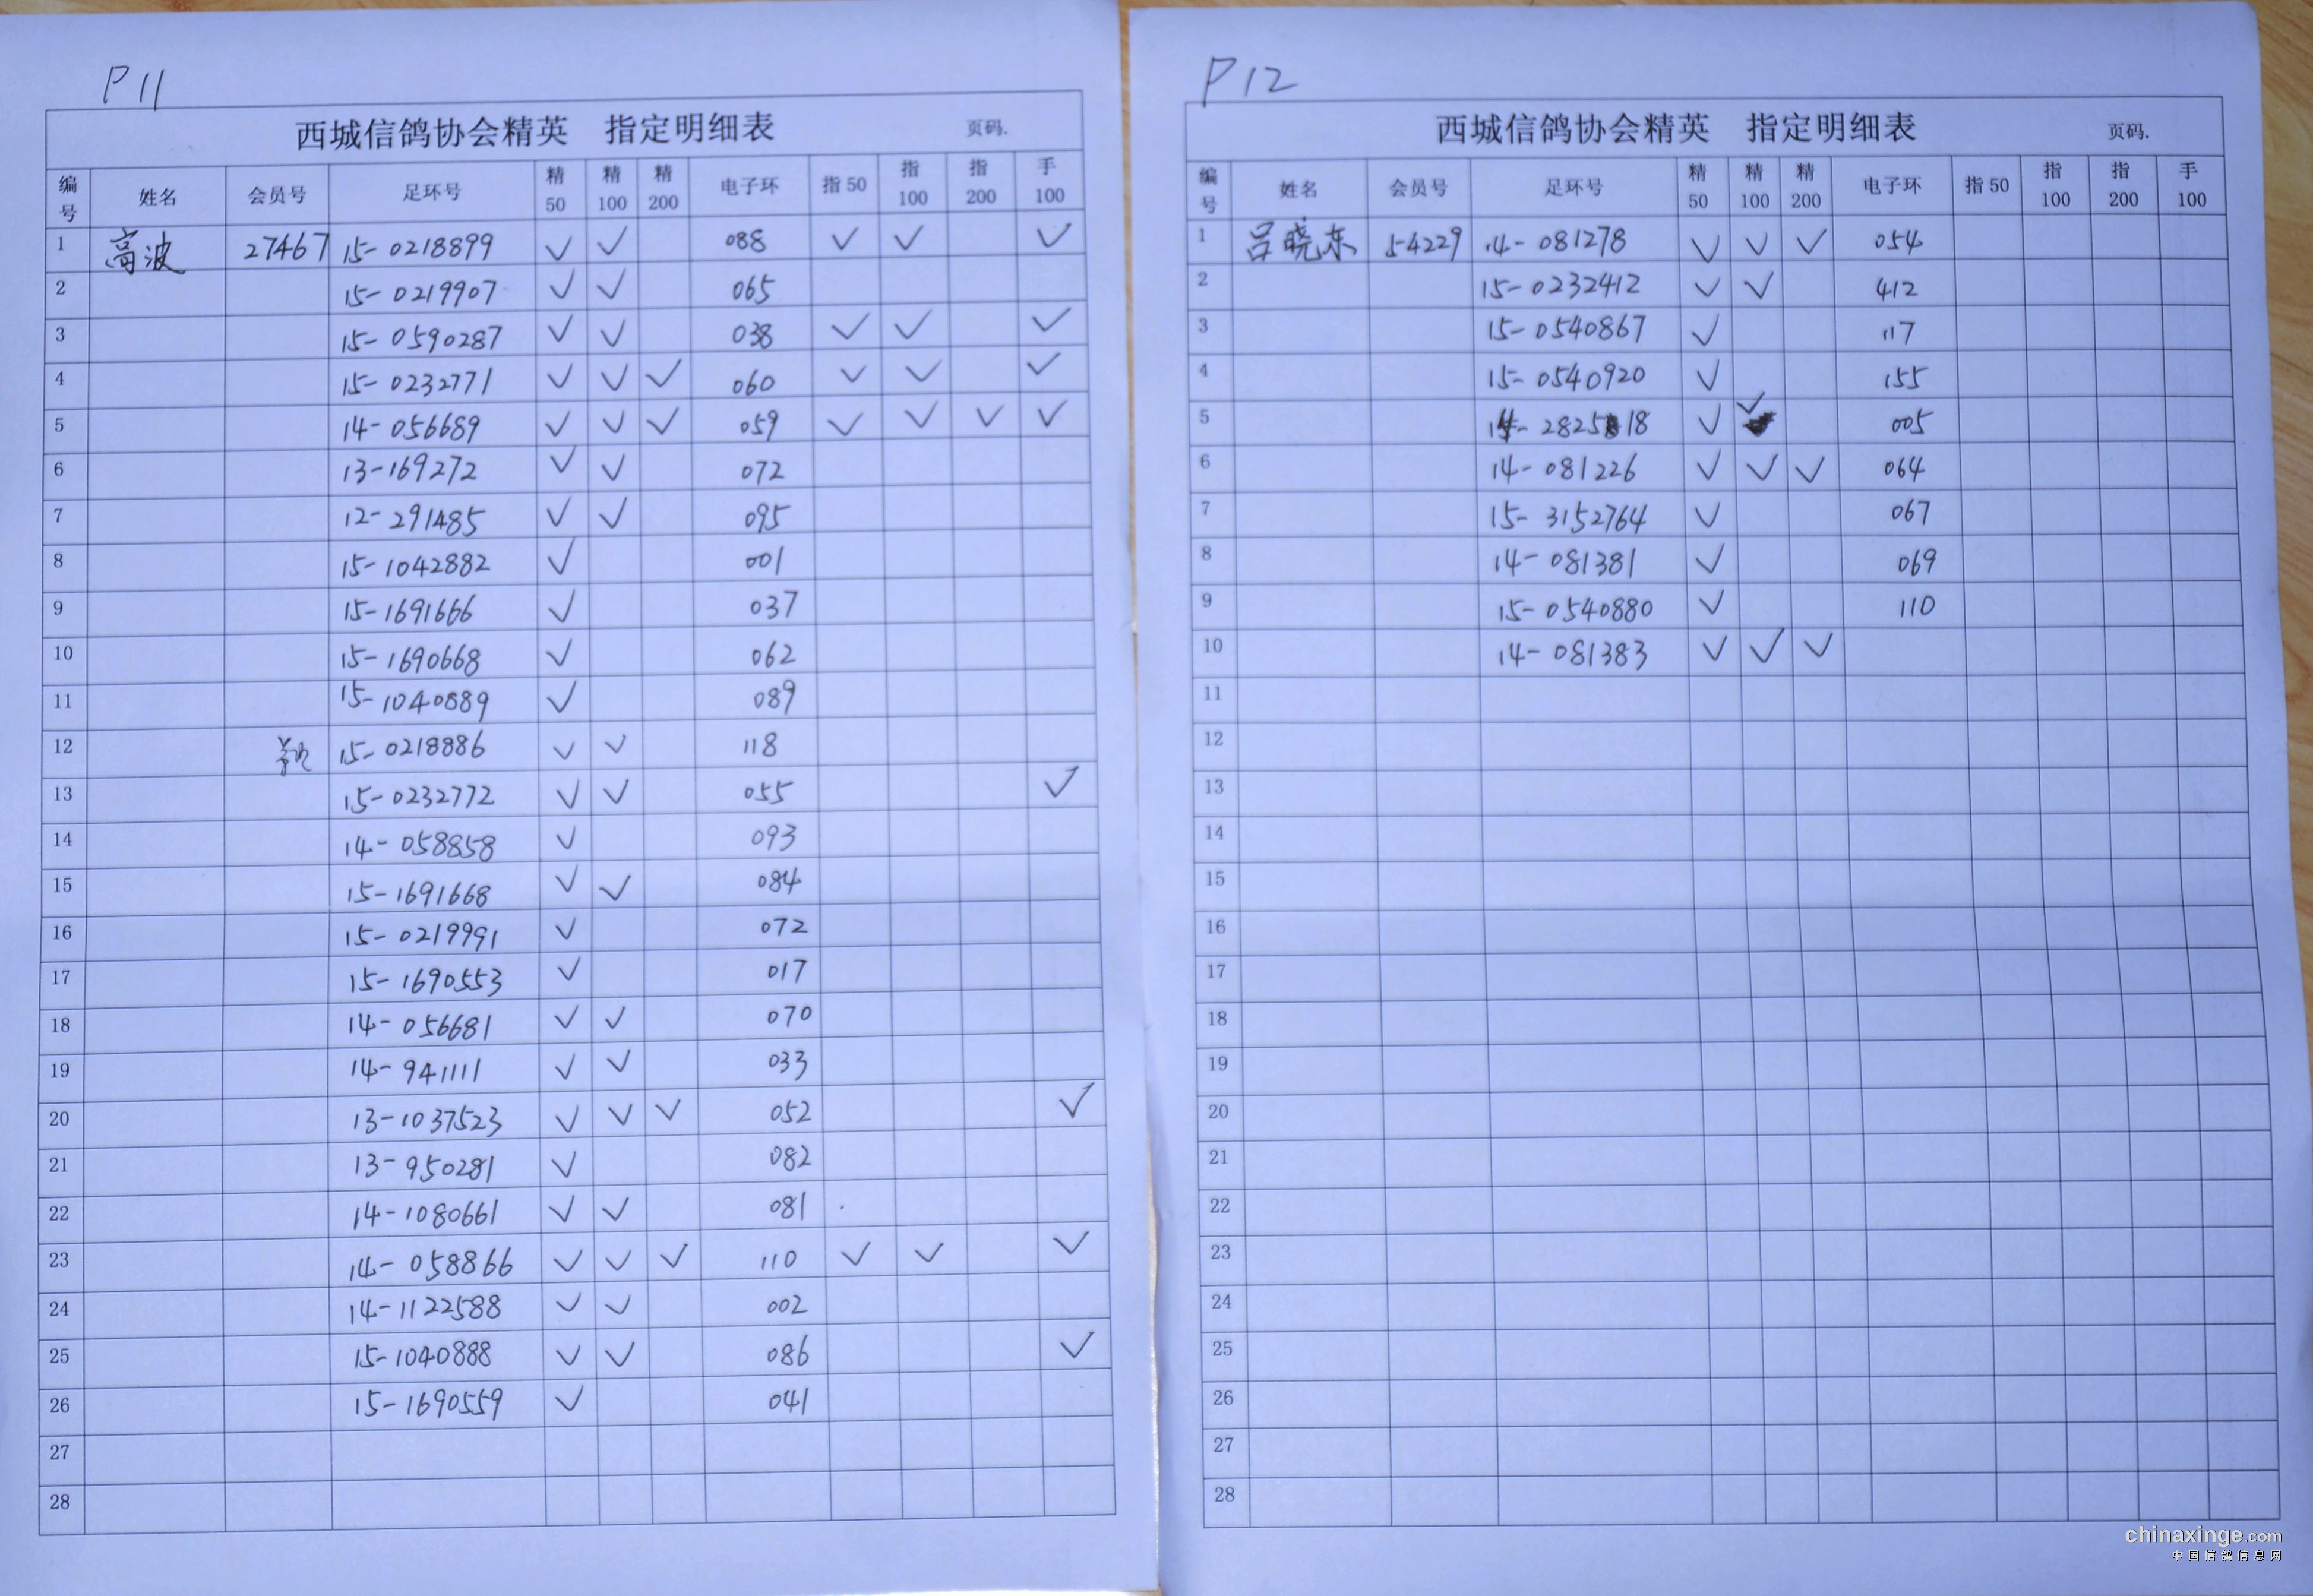 P11
西城信鸽协会精英 指定明细表 页码.
编号 姓名 会员号 足环号 精50 精100 精200 电子环 指50 指100 指200 手100
1 高波 27467 15-0218899 ✓ ✓ 088 ✓ ✓ ✓
2 15-0219907 ✓ ✓ 065
3 15-0590287 ✓ ✓ 038 ✓ ✓ ✓
4 15-0232771 ✓ ✓ ✓ 060 ✓ ✓ ✓
5 14-056689 ✓ ✓ ✓ 059 ✓ ✓ ✓ ✓
6 13-169272 ✓ ✓ 072
7 12-291485 ✓ ✓ 095
8 15-1042882 ✓ 001
9 15-1691666 ✓ 037
10 15-1690668 ✓ 062
11 15-1040889 ✓ 089
12 15-0218886 ✓ ✓ 118
13 15-0232772 ✓ ✓ 055 ✓
14 14-058858 ✓ 093
15 15-1691668 ✓ ✓ 084
16 15-0219991 ✓ 072
17 15-1690553 ✓ 017
18 14-056681 ✓ ✓ 070
19 14-941111 ✓ ✓ 033
20 13-1037523 ✓ ✓ ✓ 052 ✓
21 13-950281 ✓ 082
22 14-1080661 ✓ ✓ 081
23 14-058866 ✓ ✓ ✓ 110 ✓ ✓ ✓
24 14-1122588 ✓ ✓ 002
25 15-1040888 ✓ ✓ 086 ✓
26 15-1690559 ✓ 041
27
28
P12
西城信鸽协会精英 指定明细表 页码.
编号 姓名 会员号 足环号 精50 精100 精200 电子环 指50 指100 指200 手100
1 吕晓东 54229 14-081278 ✓ ✓ ✓ 054
2 15-0232412 ✓ ✓ 412
3 15-0540867 ✓ 117
4 15-0540920 ✓ 155
5 ✓ ✓ 005
6 14-081226 ✓ ✓ ✓ 064
7 15-3152764 ✓ 067
8 14-081381 ✓ 069
9 15-0540880 ✓ 110
10 14-081383 ✓ ✓ ✓
11
12
13
14
15
16
17
18
19
20
21
22
23
24
25
26
27
28
chinaxinge.com
中国信鸽信息网